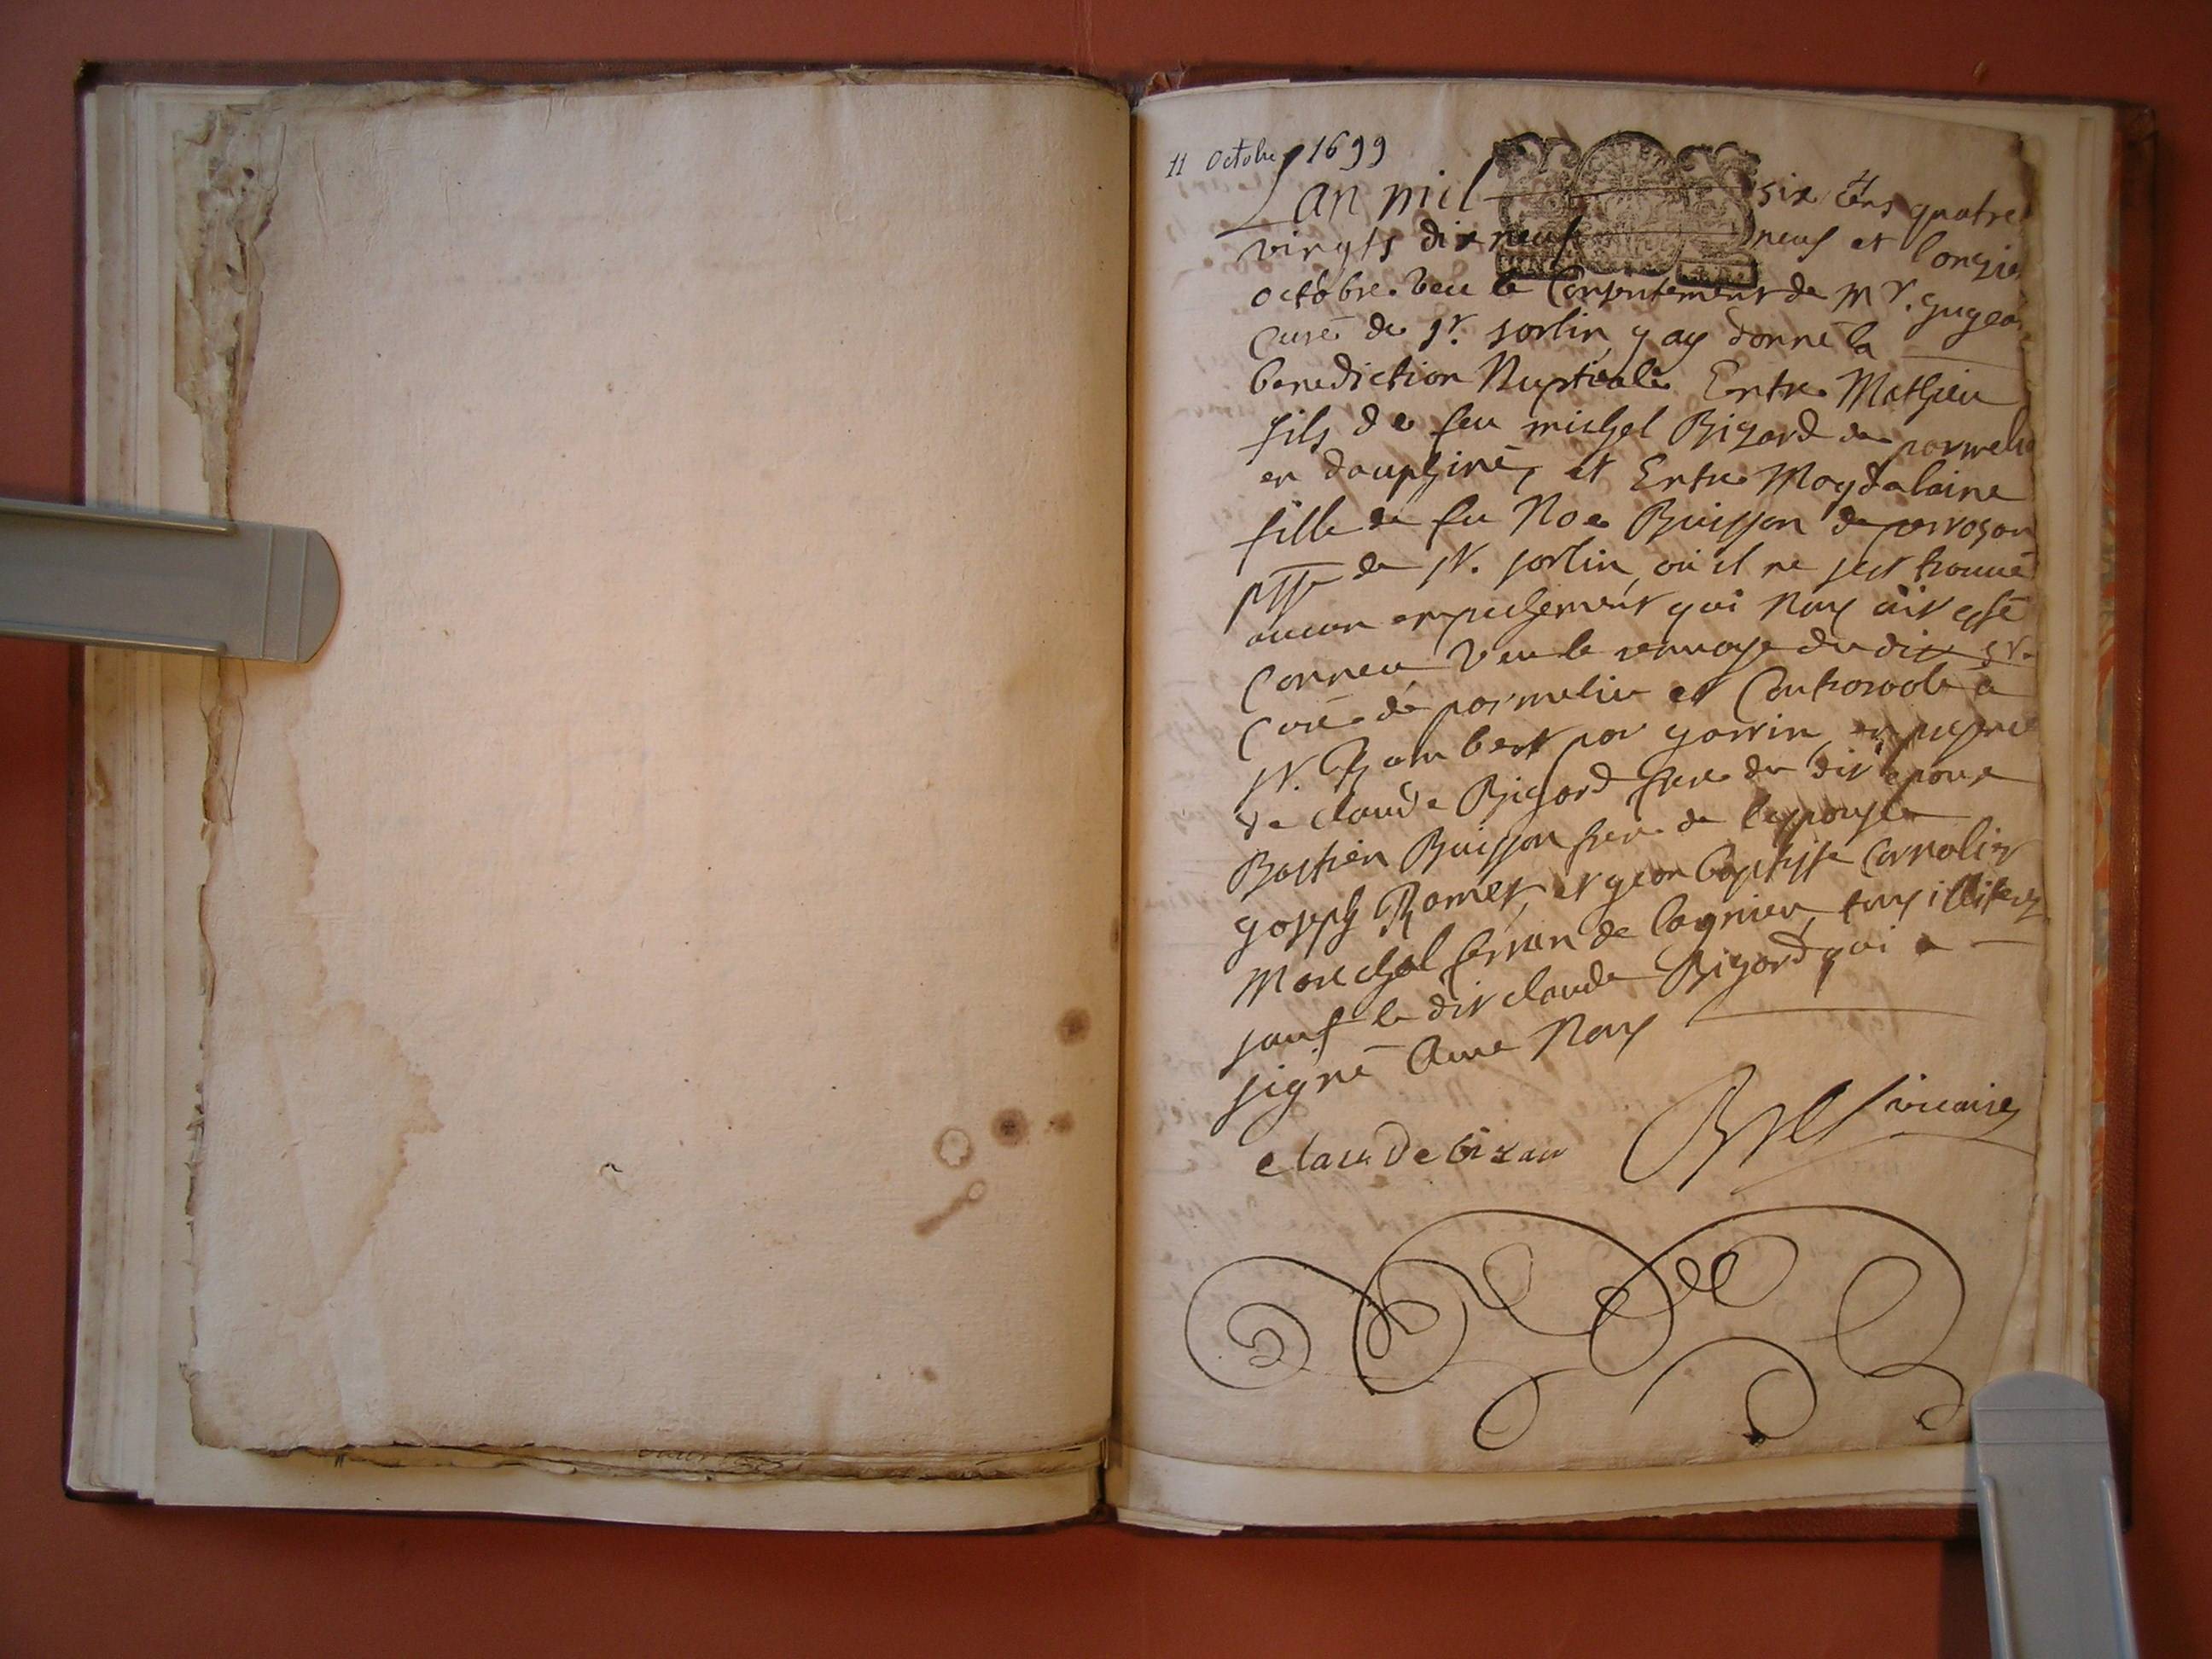 11 Octobre 1699
Lan mil six cens quatre
vingts dix neuf neuf et lonzie
octobre. veu le Consentement de Mr. gugeo
Curé de st. sorlin, g ay donné la
benediction Nuptiale Entre Mathieu
fils de feu michel Bizard de parmelie
en dauphiné, et Entre Magdalaine
fille de feu Noe Buisson de perrozan
psse de st. sorlin, ou il ne sest trouué
aucun empechement qui nous ait esté
Conneu veu le renuoye du dit sr.
Curé de parmelie et Controoole a
st. Rambert par garrin, en presence
de claude Bizard frere du dit epoux
Bastien Buisson frere de lespouse
goseph Ramet, et gean baptiste Carralier
Marechal ferran de lagnieu, tous illiterez
sauf le dit claude Bizard qui a
signé Auec Nous
claude bizar
vicaire